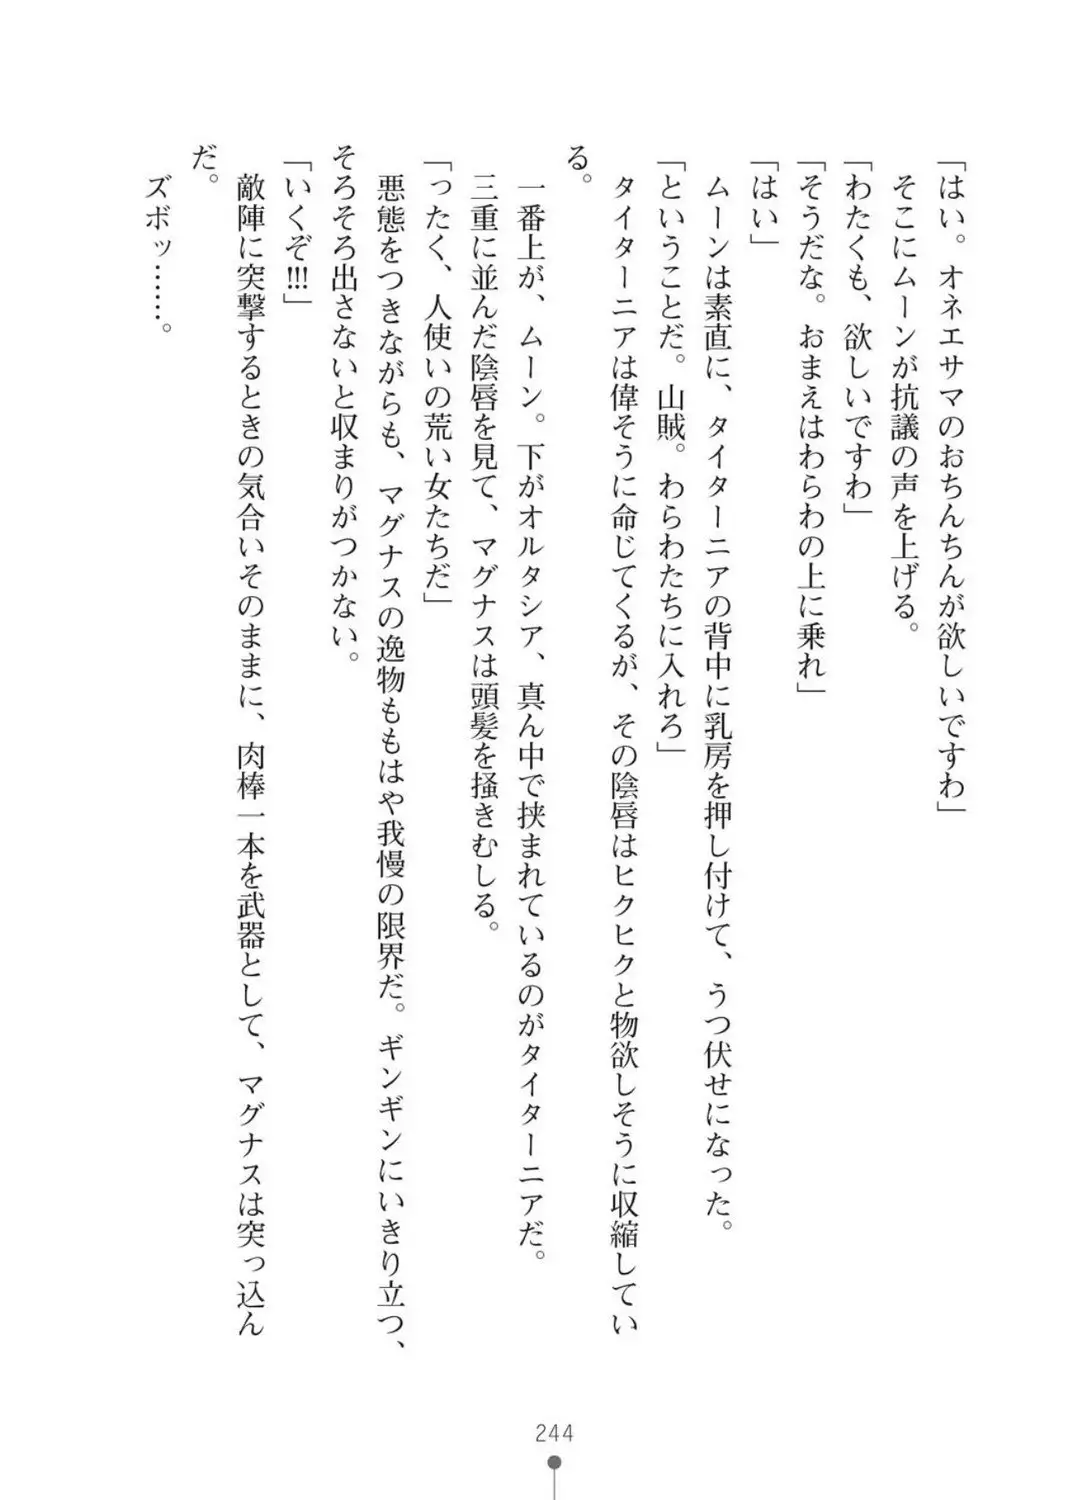 「はい。オネエサマのおちんちんが欲しいですわ」
そこにムーンが抗議の声を上げる。
「わたくも、欲しいですわ」
「そうだな。おまえはわらわの上に乗れ」
「はい」
ムーンは素直に、タイターニアの背中に乳房を押し付けて、うつ伏せになった。
「ということだ。山賊。わらわたちに入れろ」
タイターニアは偉そうに命じてくるが、その陰唇はヒクヒクと物欲しそうに収縮してい
る。
一番上が、ムーン。下がオルタシア、真ん中で挟まれているのがタイターニアだ。
三重に並んだ陰唇を見て、マグナスは頭髪を掻きむしる。
「ったく、人使いの荒い女たちだ」
悪態をつきながらも、マグナスの逸物ももはや我慢の限界だ。ギンギンにいきり立つ、
そろそろ出さないと収まりがつかない。
「いくぞ!!!」
敵陣に突撃するときの気合いそのままに、肉棒一本を武器として、マグナスは突っ込ん
だ。
ズボッ……。
244